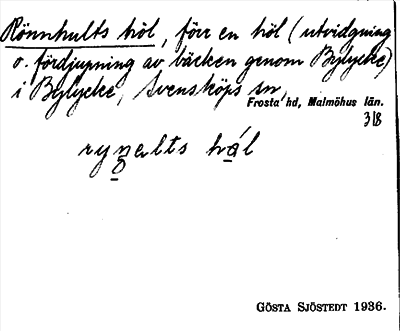 Rönnhults höl, förr en höl (utvidgning
o. fördjupning av bäcken genom Bylycke)
i Bylycke, Svensköps sn,
Frosta hd, Malmöhus län.
3/8
hål
GÖSTA SJÖSTEDT 1936.